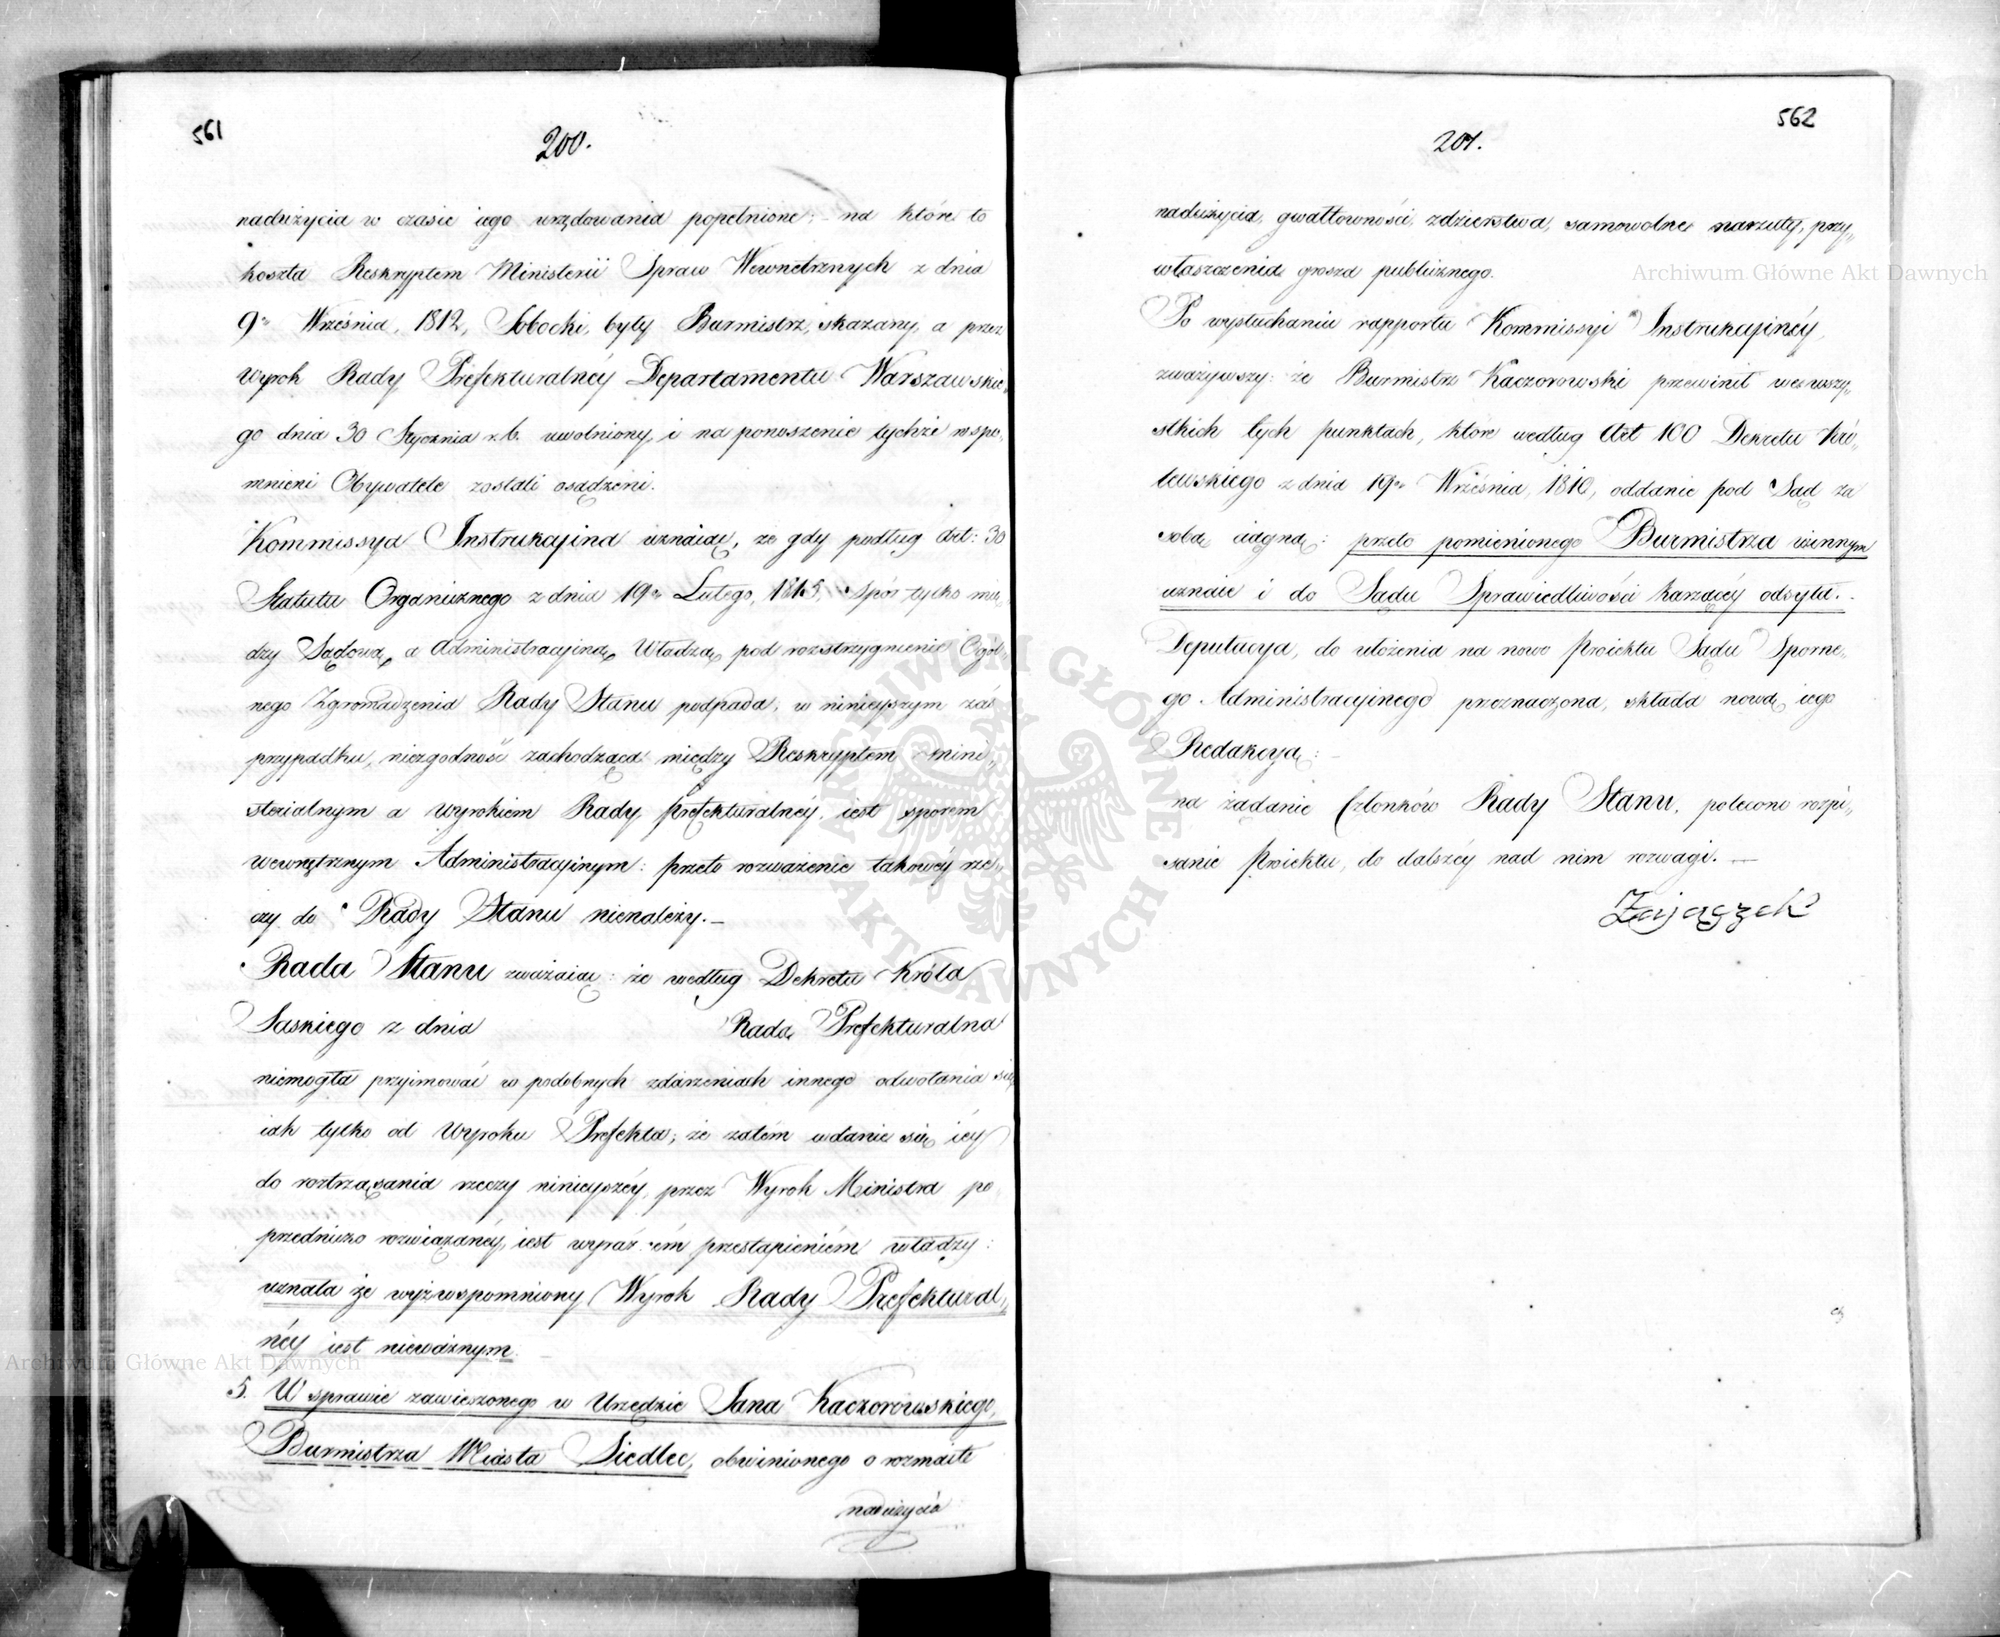 561
200.
nadużycia w czasie iego urzędowania popełnione; – na które to
koszta Reskryptem Ministerii Spraw Wewnetrznych z dnia
9go Września, 1812, Sobocki, były Burmistrz, skazany, a przez
Wyrok Rady Prefekturalnéy Departamentu Warszawskie,,
go dnia 30 Stycznia r. b. uwolniony, i na ponoszenie tychże wspo,,
mnieni Obywatele zostali osądzeni.
Kommissya Instrukcyina uznaiąc, że gdy podług Art: 30
Statutu Organicznego z dnia 19go Lutego, 1815, Spór tylko mię,,
dzy Sądową, a Administracyiną Władzą pod rozstrzygnienie Ogól,,
nego Zgromadzenia Rady Stanu podpada, w ninieyszym zaś
przypadku, niezgodność zachodząca między Reskryptem Mini,,
steryalnym a Wyrokiem Rady Prefekturalnéy, iest sporem
wewnętrznym Administracyinym: przeto rozważenie takowéy rze,,
czy do Rady Stanu nienależy. –
Rada Stanu zważaiąc: że według Dekretu Króla
Saskiego z dnia Rada Prefekturalna
niemogła przyimować w podobnych zdarzeniach innego odwołania się
iak tylko od Wyroku Prefekta; że zatém wdanie się iéy
do roztrząsania rzeczy ninieyszéy, przez Wyrok Ministra po
przedniczo rozwiązanéy, iest wyraźném przestąpieniém władzy:
uznała że wyżwspomniony Wyrok Rady Prefektural,,
néy iest nieważnym. –
5. W sprawie zawieszonego w Urzędzie Jana Kaczorowskiego,
Burmistrza Miasta Siedlec, obwinionego o rozmaite
nadużycia
562
201.
nadużycia, gwałtowności, zdzierstwa, samowolne narzuty, przy,,
właszczenia grosza publicznego.
Po wysłuchaniu rapportu Kommissyi Instrukcyinéy,
zważywszy: że Burmistrz Kaczorowski przewinił we wszy,,
stkich tych punktach, które według Art 100 Dekretu Kró,,
lewskiego z dnia 19go Września, 1810, oddanie pod Sąd za
sobą ciągną: przeto pomienionego Burmistrza winnym
uznaie i do Sądu Sprawiedliwości karzącéy odsyła. –
Deputacya, do ułożenia na nowo Proiektu Sądu Sporne,,
go Administracyinego przeznaczona, składa nową iego
Redakcyą: –
na żądanie Członków Rady Stanu, polecono rozpi,,
sanie Proiektu, do dalszéy nad nim rozwagi. –
Zajączek
Archiwum Główne Akt Dawnych
Archiwum Główne Akt Dawnych
ARCHIWUM GŁÓWNE AKT DAWNYCH